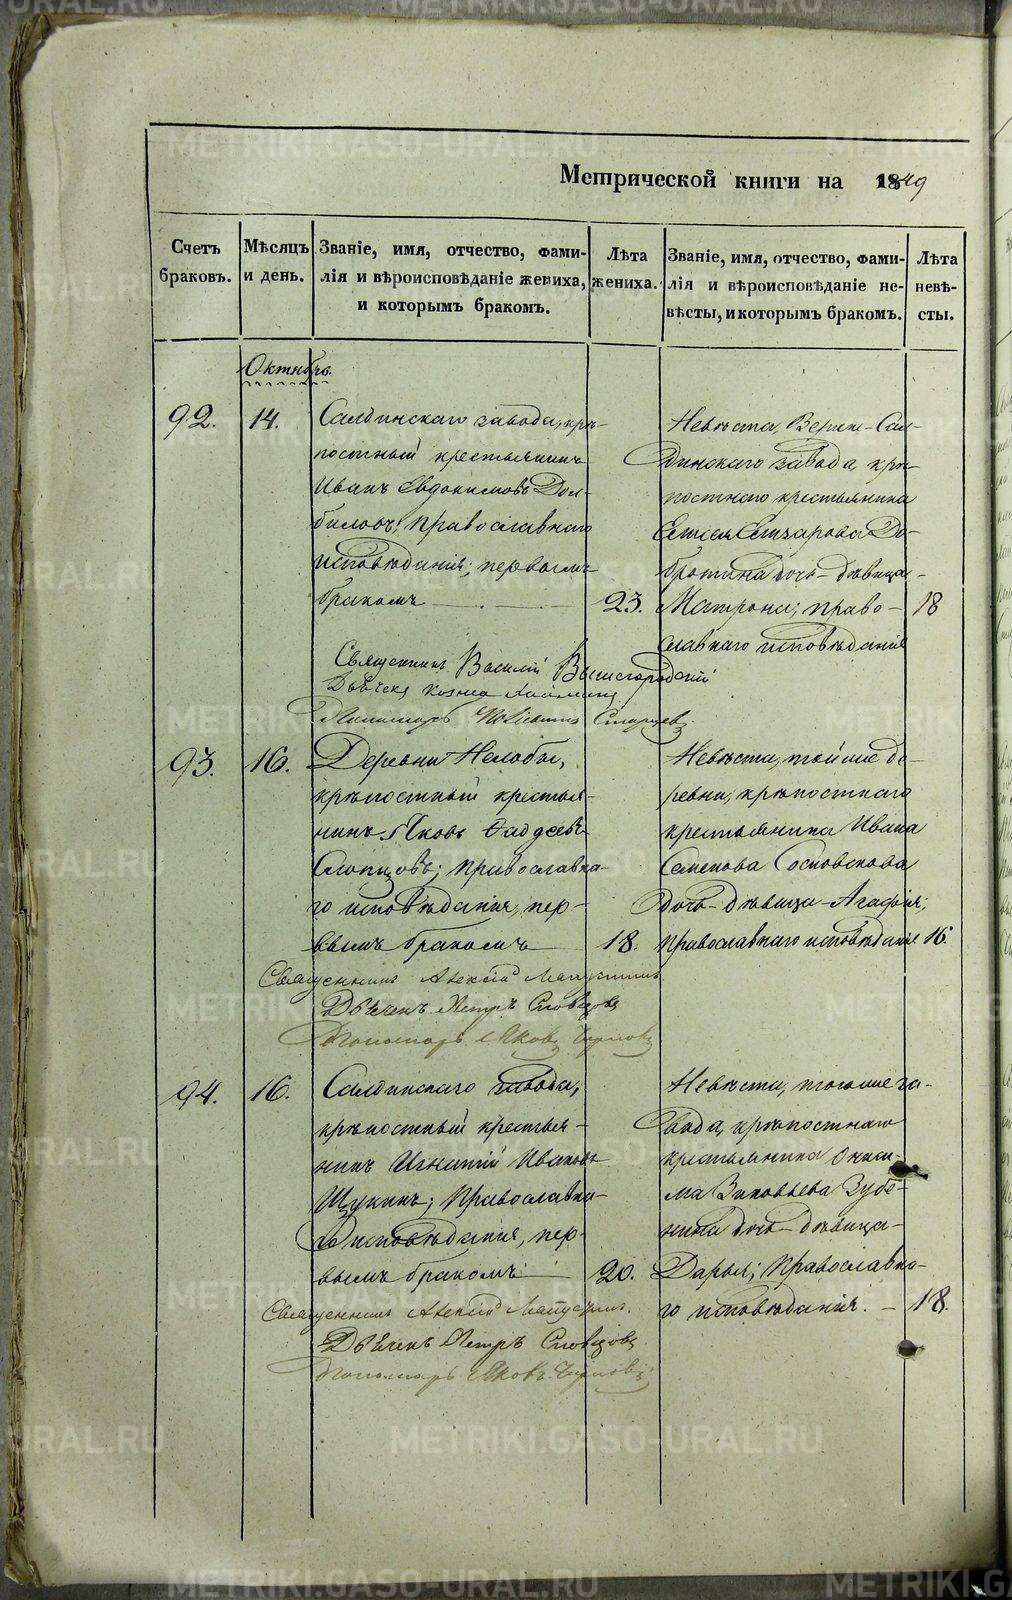 Метрической книги на 1849
Счетъ браковъ.
Мѣсяцъ и день.
Званіе, имя, отчество, фами-
лія и вѣроисповѣданіе жениха,
и которымъ бракомъ.
Лѣта жениха.
Званіе, имя, отчество, фами-
лія и вѣроисповѣданіе не-
вѣсты, и которымъ бракомъ.
Лѣта невѣ-
сты.
Октябрь.
92. 14.
Салдинскаго завода, крѣ-
постный крестьянинъ
Иванъ Евдокимовъ Дол-
биловъ; православнаго
исповѣданія; первымъ
бракомъ 23.
Невѣста, Верхне-Сал-
динскаго завода крѣ-
постнаго крестьянина
До-
дочь-дѣвица
Матрона; право- 18
славнаго исповѣданія
Священникъ Василій Вышегородскій
Дьячекъ Козма
Пономарь Старцевъ.
93. 16.
Деревни Нелобы,
крѣпостный крестья-
нинъ Яковъ Фаддеевъ
Слопцовъ; православна-
го исповѣданія, пер-
вымъ бракомъ 18.
Невѣста, тойже де-
ревни, крѣпостнаго
крестьянина Ивана
Семенова
дочь-дѣвица-Агафія;
православнаго исповѣданія 16.
Священникъ Алексій
Дьячекъ Петръ Словцовъ
Пономарь Яковъ
94. 16.
Салдинскаго завода,
крѣпостный крестья-
нинъ Игнатій Ивановъ
Щукинъ; православна-
го исповѣданія, пер-
вымъ бракомъ 20.
Невѣста, тогоже за-
вода, крѣпостнаго
крестьянина Аниси-
ма Зиновьева Зубе-
нина дочь-дѣвица-
Дарья; православна-
го исповѣданія. - 18.
Священникъ Алексій
Дьячекъ Петръ Словцовъ
Пономарь Яковъ
METRIKI.GASO-URAL.RU